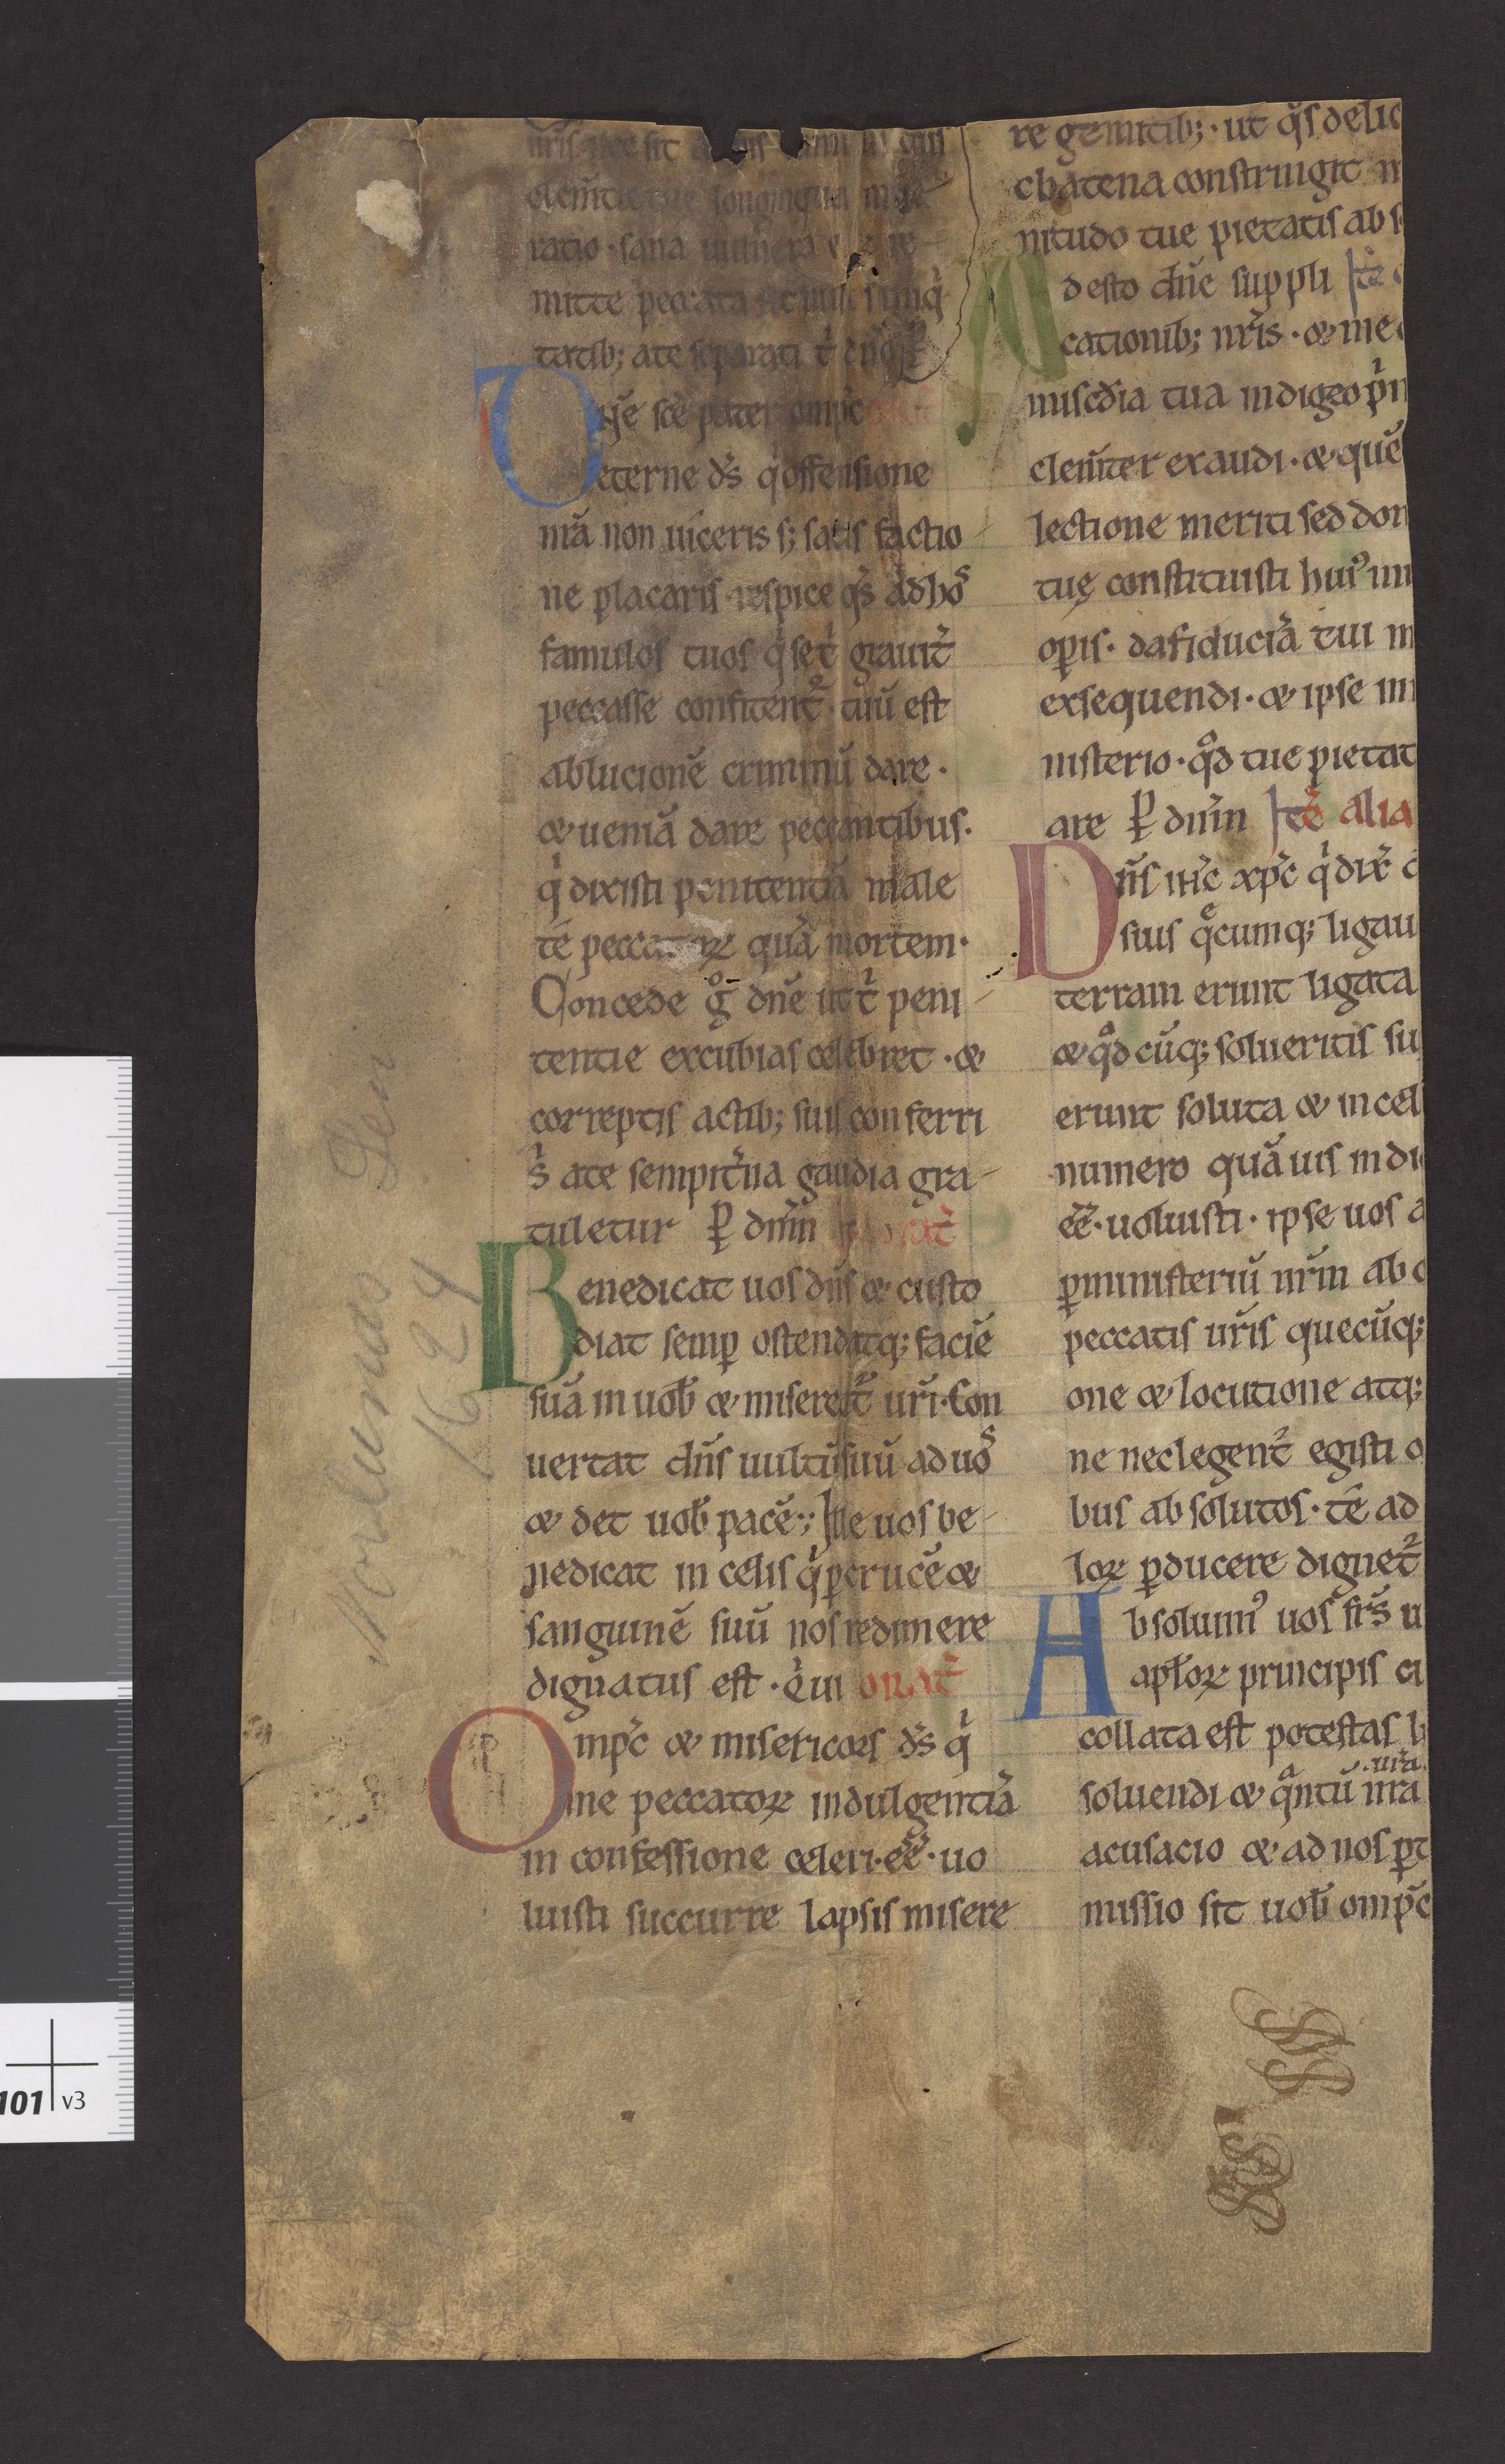 clemtie tue longinqua mise
ratio · sana uulnera e z re
mitte peccata ut nullis iniq
tatib; a te separati t enqs
Dne sce pater ompc
eterne ds q offensione
nra non uiceris s; satis factio
ne placaris · respice qs ad hos
famulos tuos q se t grauit
peccasse confitent · tuu est
ablucione criminu dare ·
& uenia dare peccantibus.
q dixisti penitentia male
te peccatoꝝ qua mortem ·
Concede g dne ut t peni
tentie excubias celebret · &
correptis actib; suis conferri
s a te sempitna gaudia gra
tuletur ꝑ dnm
Benedicat uos dns & custo
diat semꝑ ostendatq; facie
sua in uob & misereat uri · Con
uertat dns uultu suu ad uos
& det uob pace · Ille uos be
nedicat in celis q ꝑ cruce &
sanguine suu nos redimere
dignatus est · Qui orat
Ompc & misericors ds q
in confessione celeri · ee · uo
luisti succurre lapsis misere
re gemitib; · ut qs delic
chatena constringit m
nitudo tue pietatis ab s
Adesto dne suppli Ite
cationib; nris · & me
misedia tua indigeo pm
clemter exaudi · & que
lectione meriti sed don
tuę constituisti hui' mi
oꝑis · da fiducia tui m
exsequendi · & ipse in
nisterio · qd tue pietat
are ꝑ dnm Ite alia
Dns ihc xpc q dix d
suis qcumq; ligau
terram erunt ligata
& qd cuq; solueritis su
erunt soluta & in cel
numero quauis indi
ee · uoluisti · ipse uos a
ꝑ ministeriu nrm ab o
peccatis uris quecuq;
one & locutione atq;
ne neclegent egisti o
bus absolutos · te ad
loꝝ ꝑducere dignet
Absoluim' uos frs u
aptoꝝ principis cu
collata est potestas l
· ura ·
soluendi & qntu nra
acusacio & ad nos ꝑt
missio sit uob ompc
1624